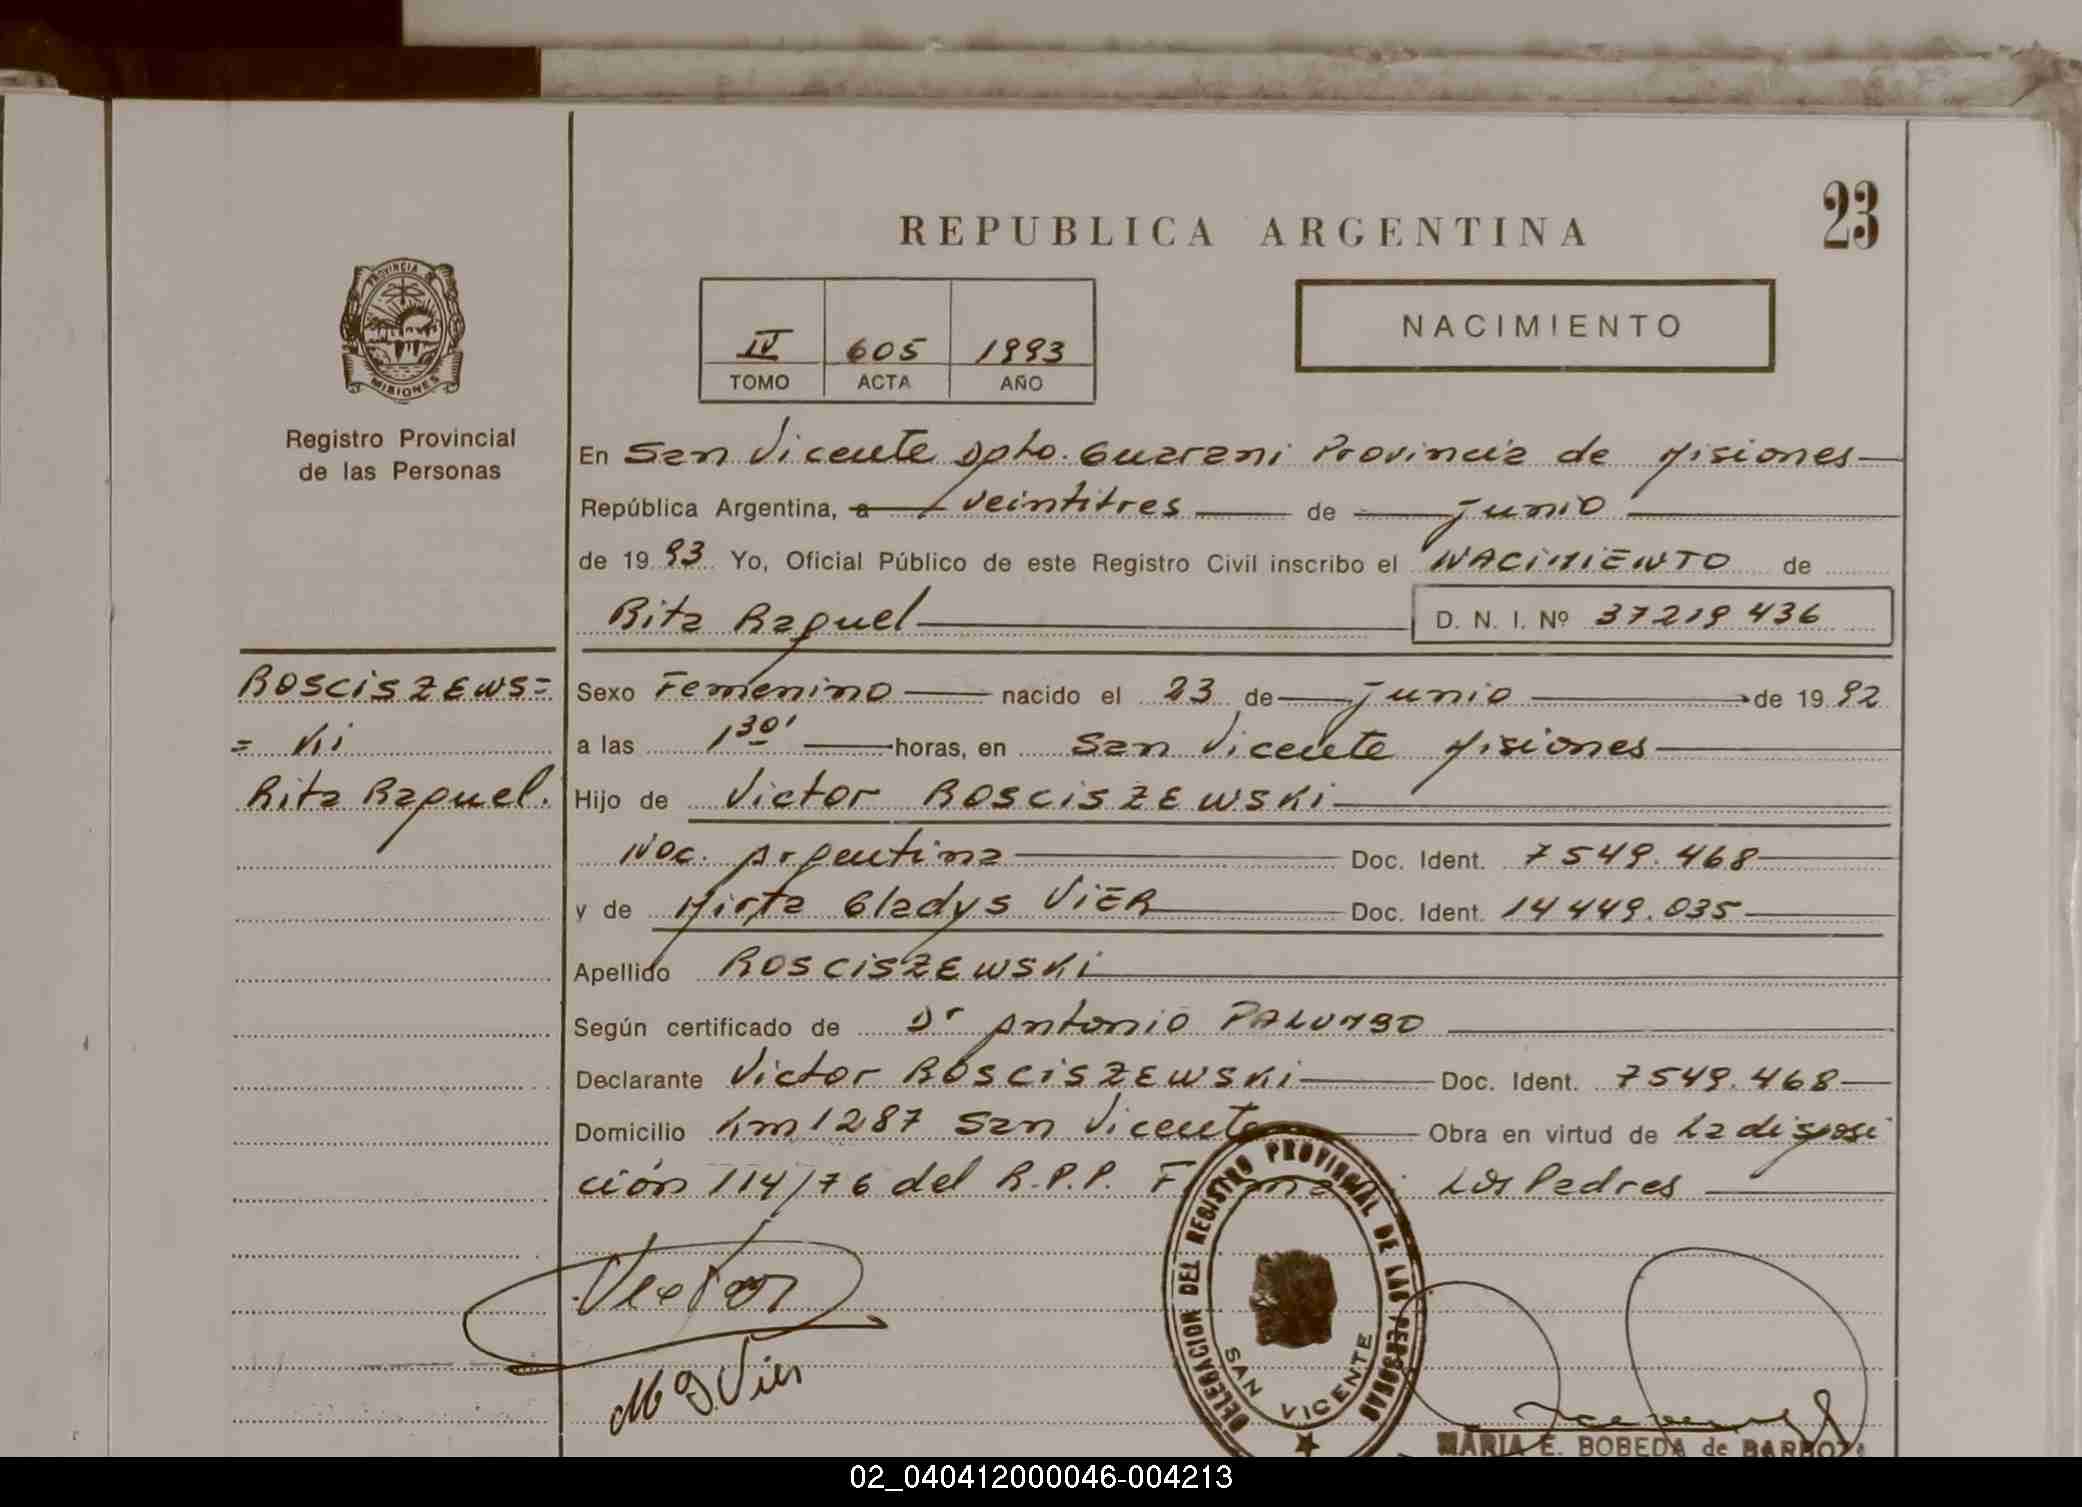 23
REPUBLICA ARGENTINA
PROVINCIA DE
MISIONES
Registro Provincial
de las Personas
IV 605 1993
TOMO ACTA AÑO
NACIMIENTO
En San Vicente Dpto. Guarani Provincia de Misiones
República Argentina, a veintitres de junio
de 1993 Yo, Oficial Público de este Registro Civil inscribo el NACIMIENTO de
Rita Raquel D. N. I. Nº 37219436
ROSCISZEWS=
=Ki
Rita Raquel.
Sexo Femenino nacido el 23 de junio de 1992
a las 1 30' horas, en San Vicente Misiones
Hijo de Victor ROSCISZEWSKi
Nac. Argentina Doc. Ident. 7549.468
y de Mirta Gladys ViER Doc. Ident. 14449.035
Apellido ROSCISZEWSKi
Según certificado de Dr Antonio PALUMBO
Declarante Victor ROSCISZEWSKi Doc. Ident. 7549.468
Domicilio Km 1287 San Vicente Obra en virtud de La disposi
ción 114/76 del R.P.P. Los Padres
Victor
M G Vier
DELEGACION DEL REGISTRO PROVINCIAL DE LAS PERSONAS
SAN VICENTE
MARIA E. BOBEDA de
02_040412000046-004213